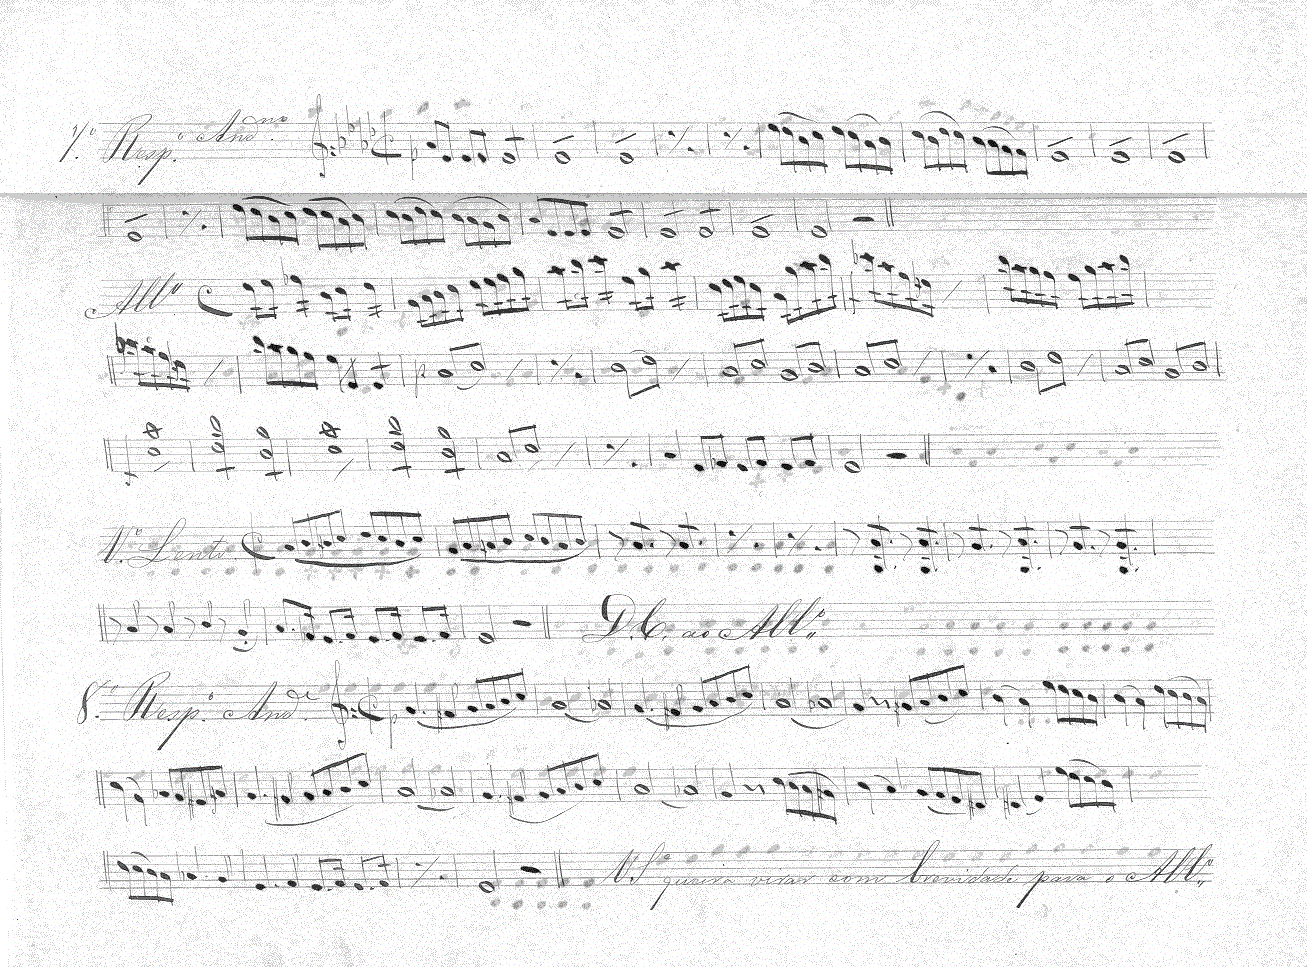 7.º Resp.º And.no
All.º
V.º Lento
D.C. ao All.º
8.º Resp.º And.te
V.S. queira virar com brevidade para o All.º